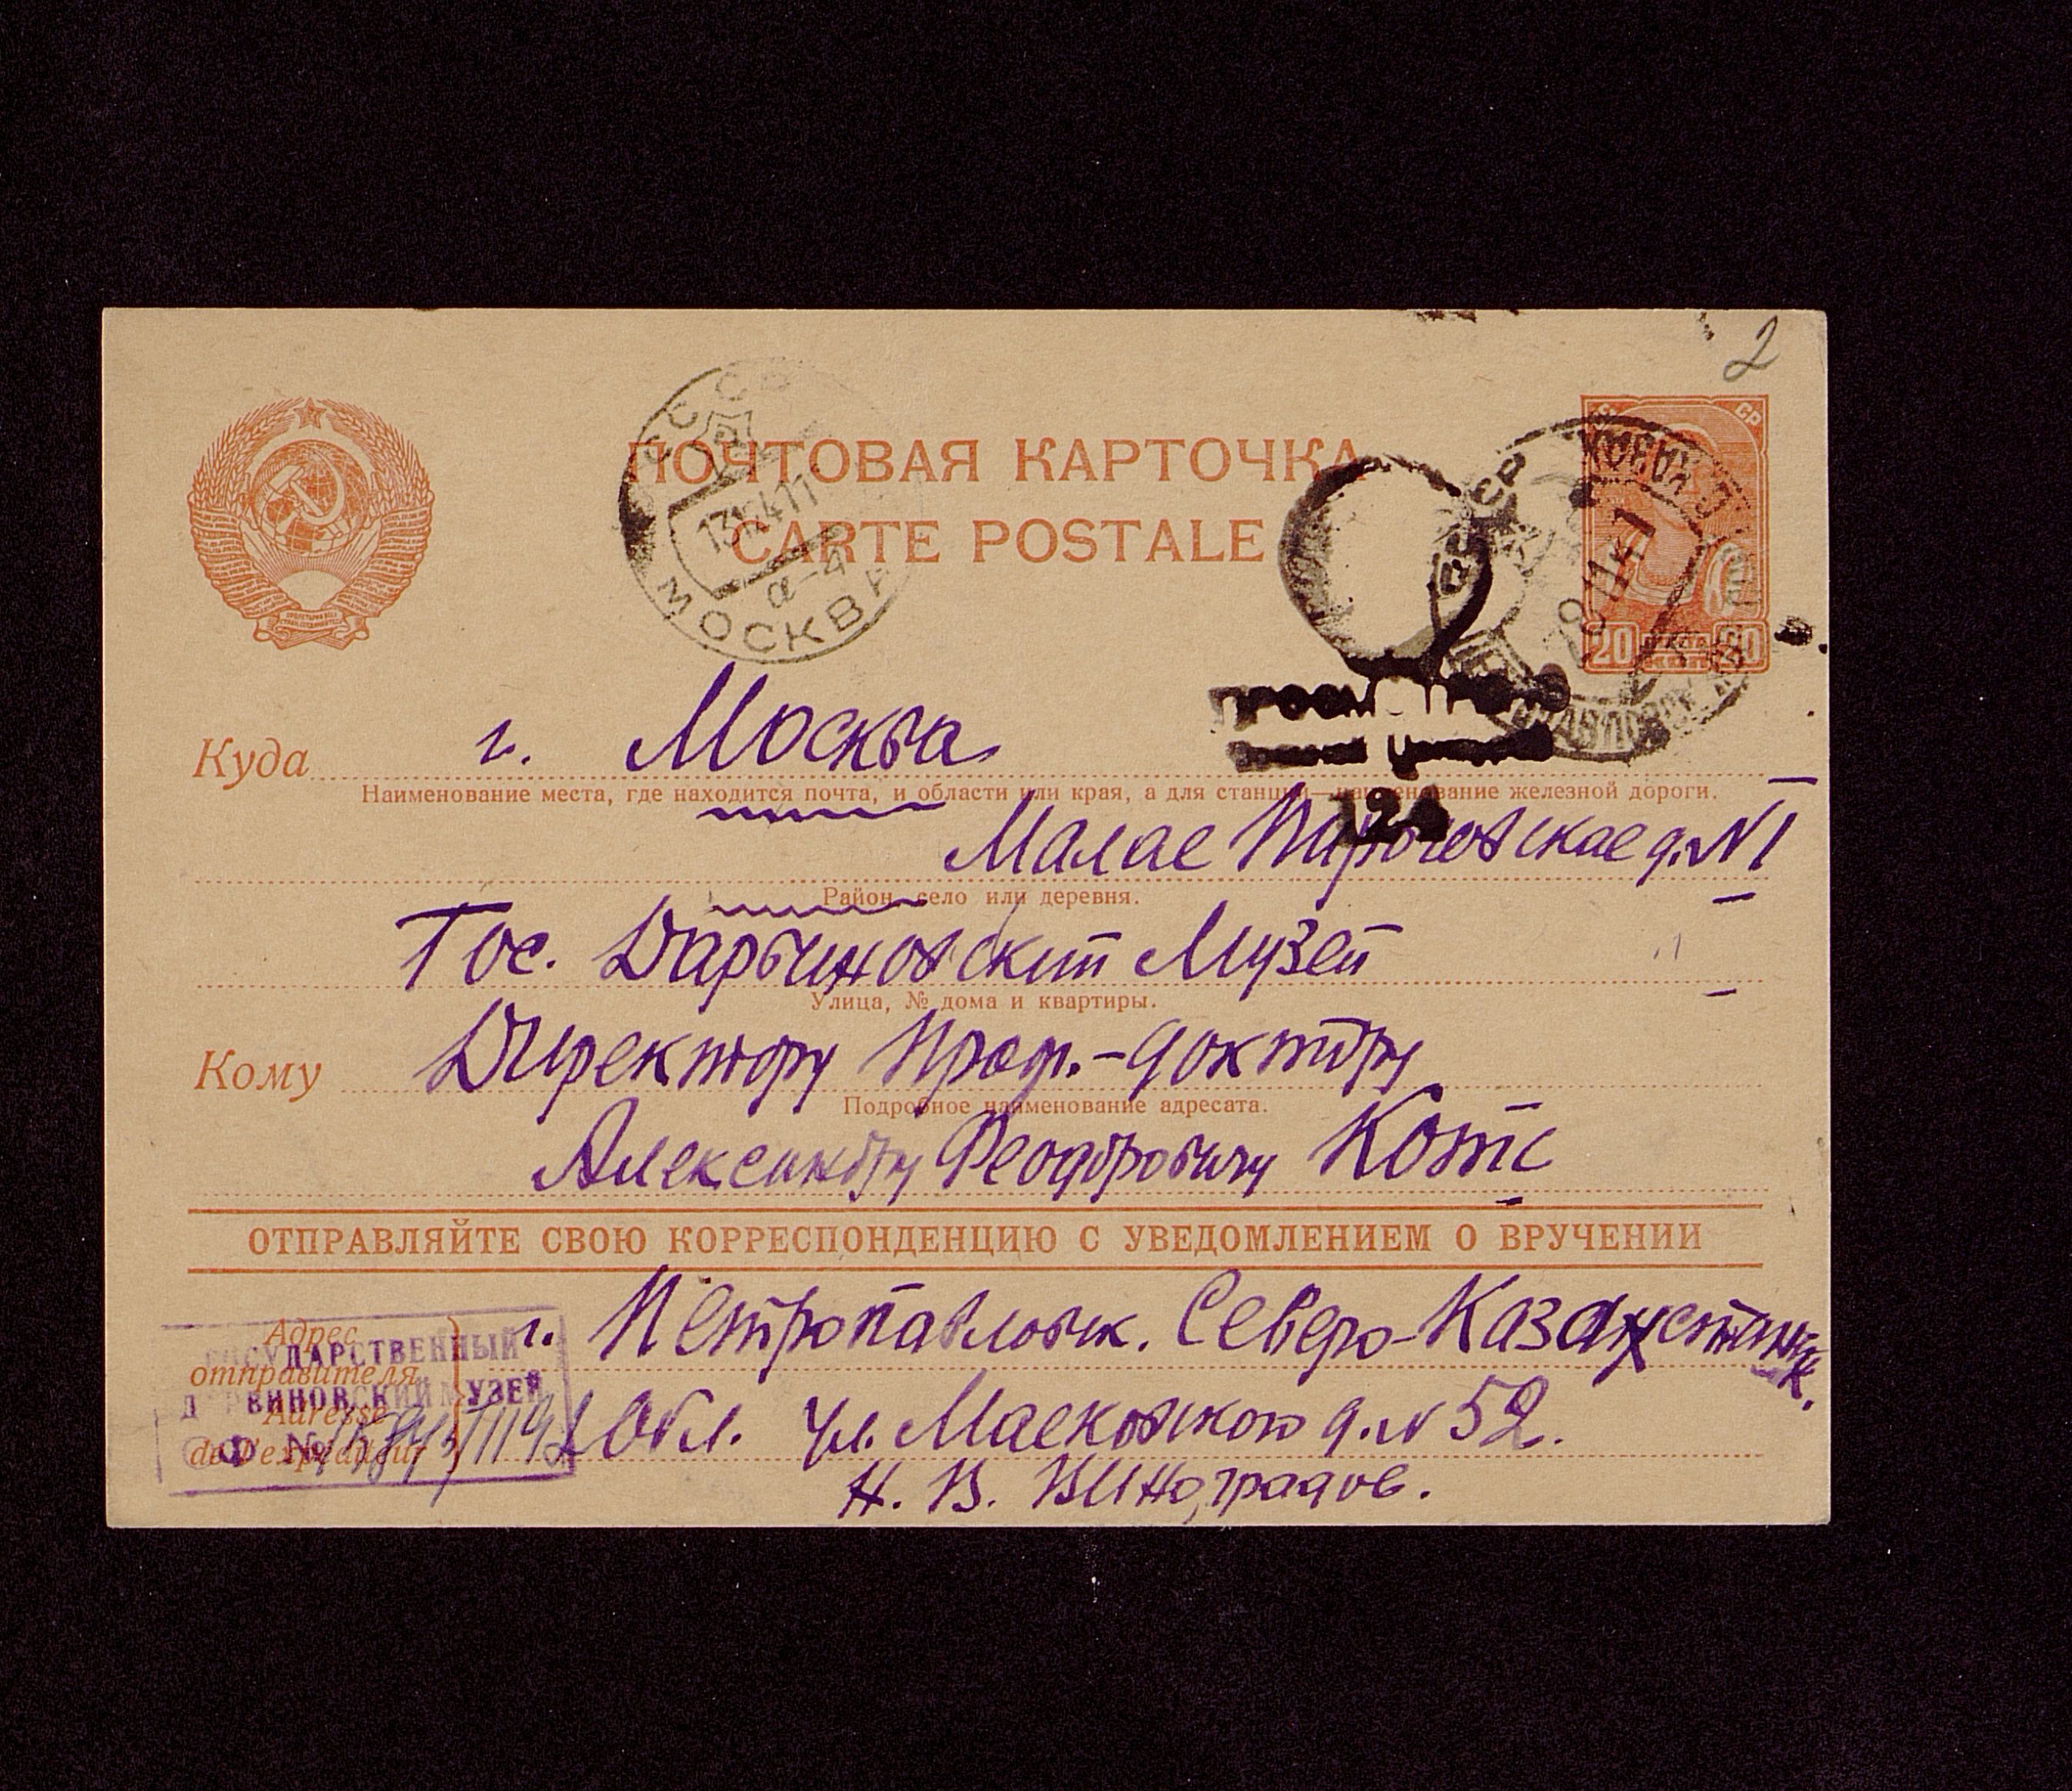 2
ПОЧТОВАЯ КАРТОЧКА
CARTE POSTALE
МОСКВА
20 20
Куда г. Москва
Наименование места, где находится почта, и области или края, а для станции—наименование железной дороги.
124
Малае Пироговскае д. N 1
Район, село или деревня.
Гос. Дарвиновский Музей
Улица, № дома и квартиры.
Кому Директору Проф.-доктору
Подробное наименование адресата.
Александру Феодоровичу Котс
ОТПРАВЛЯЙТЕ СВОЮ КОРРЕСПОНДЕНЦИЮ С УВЕДОМЛЕНИЕМ О ВРУЧЕНИИ
Адрес отправителя г. Петропавловск. Северо-Казахстанск.
Adresse de l'expéditeur Обл. ул. Маековского д. N 52.
Н. В. Виноградов.
ГОСУДАРСТВЕННЫЙ
ДАРВИНОВСКИЙ МУЗЕЙ